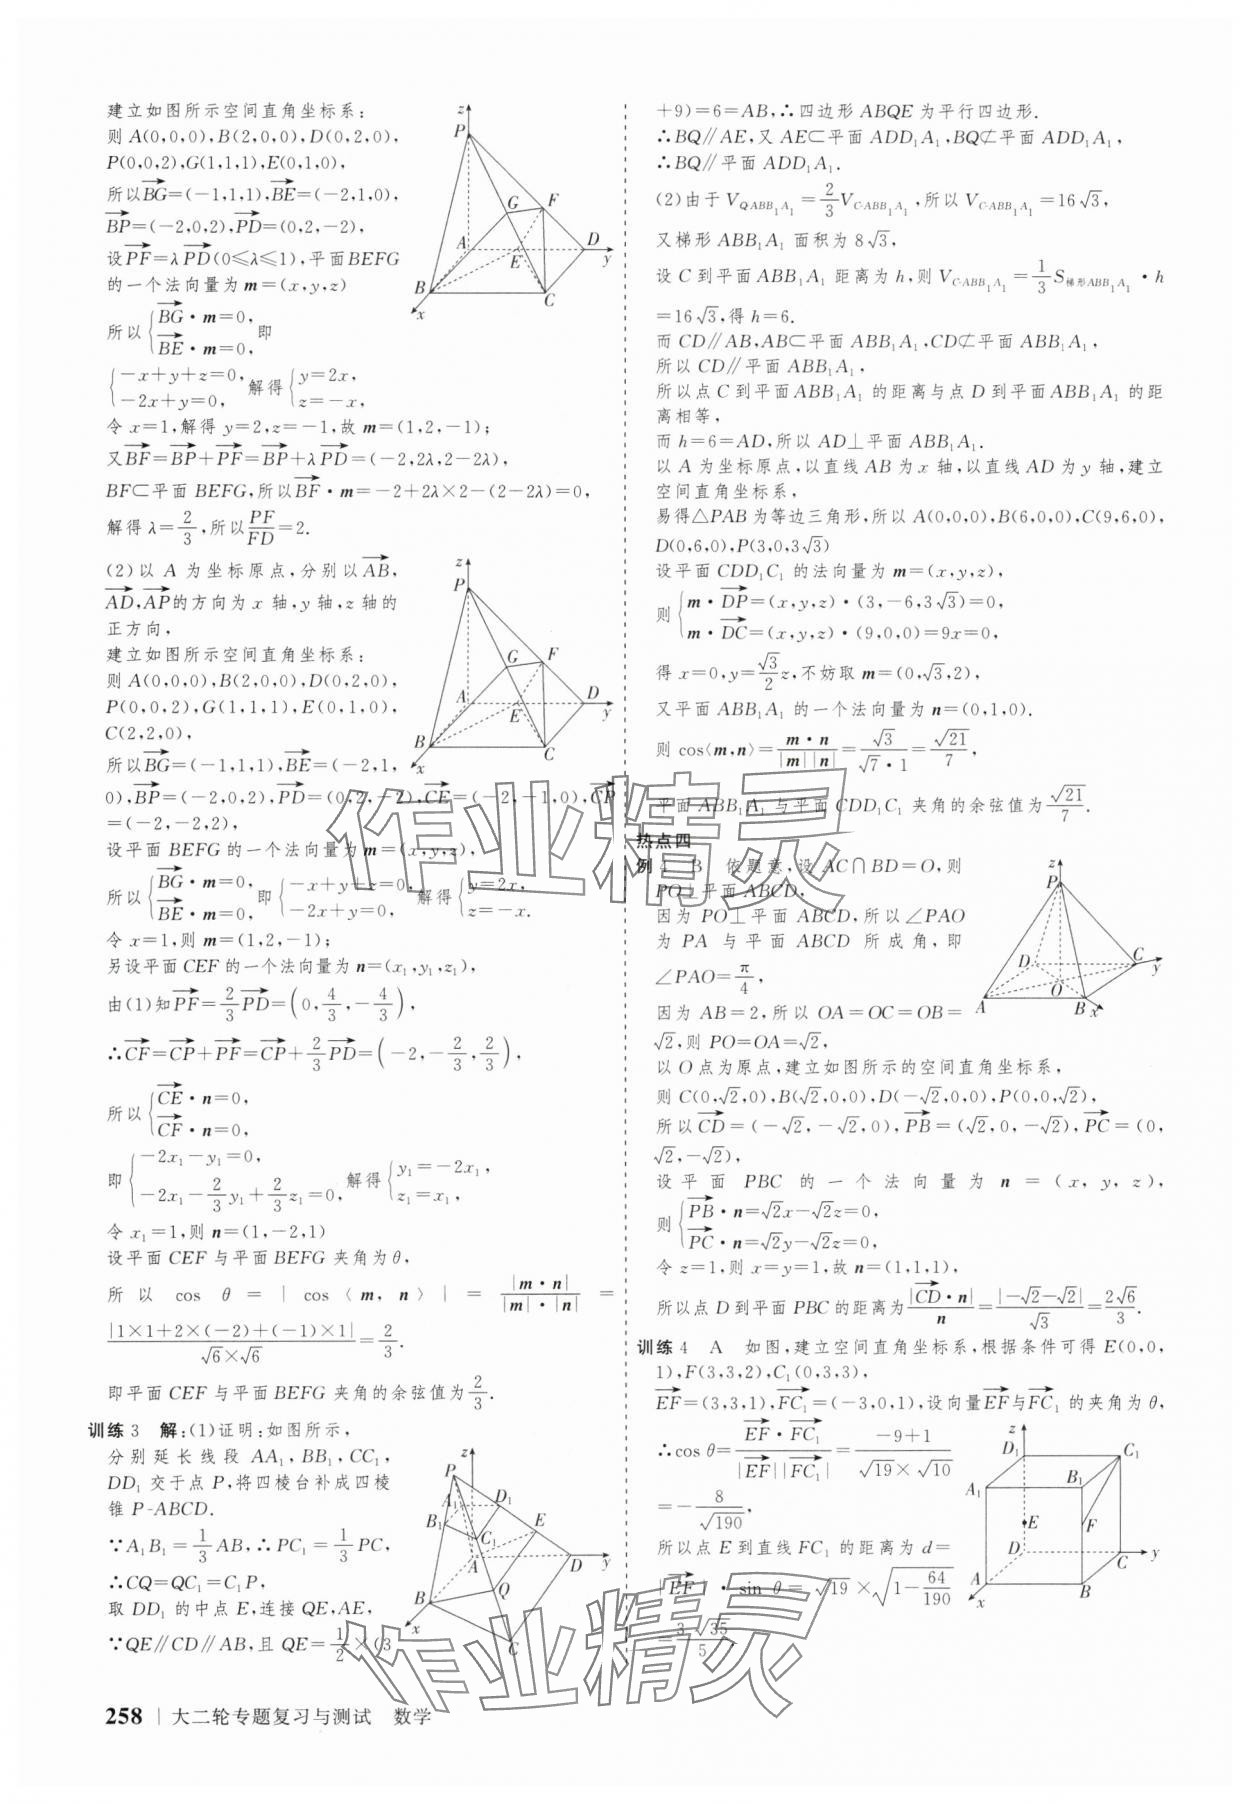 建立如图所示空间直角坐标系:
则 A(0,0,0),B(2,0,0),D(0,2,0),
P(0,0,2),G(1,1,1),E(0,1,0),
所以BG=(-1,1,1),BE=(-2,1,0),
BP=(-2,0,2),PD=(0,2,-2),
设PF=λPD(0≤λ≤1),平面BEFG
的一个法向量为 m=(x,y,z)
所以{BG·m=0, BE·m=0, 即
{-x+y+z=0, -2x+y=0, 解得{y=2x, z=-x,
令 x=1,解得 y=2,z=-1,故 m=(1,2,-1);
又BF=BP+PF=BP+λPD=(-2,2λ,2-2λ),
BF⊂平面 BEFG,所以BF·m=-2+2λ×2-(2-2λ)=0,
解得 λ=2/3,所以PF/FD=2.
(2)以 A 为坐标原点,分别以AB,
AD,AP的方向为 x 轴,y 轴,z 轴的
正方向,
建立如图所示空间直角坐标系:
则 A(0,0,0),B(2,0,0),D(0,2,0),
P(0,0,2),G(1,1,1),E(0,1,0),
C(2,2,0),
所以BG=(-1,1,1),BE=(-2,1,
0),BP=(-2,0,2),PD=(0,2,-2),CE=(-2,-1,0),CP
=(-2,-2,2),
设平面 BEFG 的一个法向量为 m=(x,y,z),
所以{BG·m=0, BE·m=0, 即{-x+y+z=0, -2x+y=0, 解得{y=2x, z=-x.
令 x=1,则 m=(1,2,-1);
另设平面 CEF 的一个法向量为 n=(x₁,y₁,z₁),
由(1)知PF=2/3PD=(0,4/3,-4/3),
∴CF=CP+PF=CP+2/3PD=(-2,-2/3,2/3),
所以{CE·n=0, CF·n=0,
即{-2x₁-y₁=0, -2x₁-2/3y₁+2/3z₁=0, 解得{y₁=-2x₁, z₁=x₁,
令 x₁=1,则 n=(1,-2,1)
设平面 CEF 与平面 BEFG 夹角为 θ,
所以 cos θ=|cos〈m,n〉|=|m·n|/|m|·|n|=
|1×1+2×(-2)+(-1)×1|/√6×√6=2/3.
即平面 CEF 与平面 BEFG 夹角的余弦值为2/3.
训练 3 解:(1)证明:如图所示,
分别延长线段 AA₁,BB₁,CC₁,
DD₁ 交于点 P,将四棱台补成四棱
锥 P-ABCD.
∵A₁B₁=1/3AB,∴PC₁=1/3PC,
∴CQ=QC₁=C₁P,
取 DD₁ 的中点 E,连接 QE,AE,
∵QE∥CD∥AB,且 QE=1/2×(3
+9)=6=AB,∴四边形 ABQE 为平行四边形.
∴BQ∥AE,又 AE⊂平面 ADD₁A₁,BQ⊄平面 ADD₁A₁,
∴BQ∥平面 ADD₁A₁.
(2)由于 V Q-ABB₁A₁=2/3V C-ABB₁A₁,所以 V C-ABB₁A₁=16√3,
又梯形 ABB₁A₁ 面积为 8√3,
设 C 到平面 ABB₁A₁ 距离为 h,则 V C-ABB₁A₁=1/3S梯形ABB₁A₁·h
=16√3,得 h=6.
而 CD∥AB,AB⊂平面 ABB₁A₁,CD⊄平面 ABB₁A₁,
所以 CD∥平面 ABB₁A₁,
所以点 C 到平面 ABB₁A₁ 的距离与点 D 到平面 ABB₁A₁ 的距
离相等,
而 h=6=AD,所以 AD⊥平面 ABB₁A₁.
以 A 为坐标原点,以直线 AB 为 x 轴,以直线 AD 为 y 轴,建立
空间直角坐标系,
易得△PAB 为等边三角形,所以 A(0,0,0),B(6,0,0),C(9,6,0),
D(0,6,0),P(3,0,3√3)
设平面 CDD₁C₁ 的法向量为 m=(x,y,z),
则{m·DP=(x,y,z)·(3,-6,3√3)=0, m·DC=(x,y,z)·(9,0,0)=9x=0,
得 x=0,y=√3/2z,不妨取 m=(0,√3,2),
又平面 ABB₁A₁ 的一个法向量为 n=(0,1,0).
则 cos〈m,n〉=m·n/|m||n|=√3/√7·1=√21/7,
平面 ABB₁A₁ 与平面 CDD₁C₁ 夹角的余弦值为√21/7.
热点四
例 4 B 依题意,设 AC∩BD=O,则
PO⊥平面 ABCD,
因为 PO⊥平面 ABCD,所以∠PAO
为 PA 与平面 ABCD 所成角,即
∠PAO=π/4,
因为 AB=2,所以 OA=OC=OB=
√2,则 PO=OA=√2,
以 O 点为原点,建立如图所示的空间直角坐标系,
则 C(0,√2,0),B(√2,0,0),D(-√2,0,0),P(0,0,√2),
所以CD=(-√2,-√2,0),PB=(√2,0,-√2),PC=(0,
√2,-√2),
设平面 PBC 的一个法向量为 n=(x,y,z),
则{PB·n=√2x-√2z=0, PC·n=√2y-√2z=0,
令 z=1,则 x=y=1,故 n=(1,1,1),
所以点 D 到平面 PBC 的距离为|CD·n|/n=|-√2-√2|/√3=2√6/3.
训练 4 A 如图,建立空间直角坐标系,根据条件可得 E(0,0,
1),F(3,3,2),C₁(0,3,3),
EF=(3,3,1),FC₁=(-3,0,1),设向量EF与FC₁的夹角为 θ,
∴cos θ=EF·FC₁/|EF||FC₁|=-9+1/√19×√10
=-8/√190,
所以点 E 到直线 FC₁ 的距离为 d=
|EF|·sin θ=√19×√1-64/190
=3√35/5.
258 | 大二轮专题复习与测试 数学
作业精灵
作业精灵